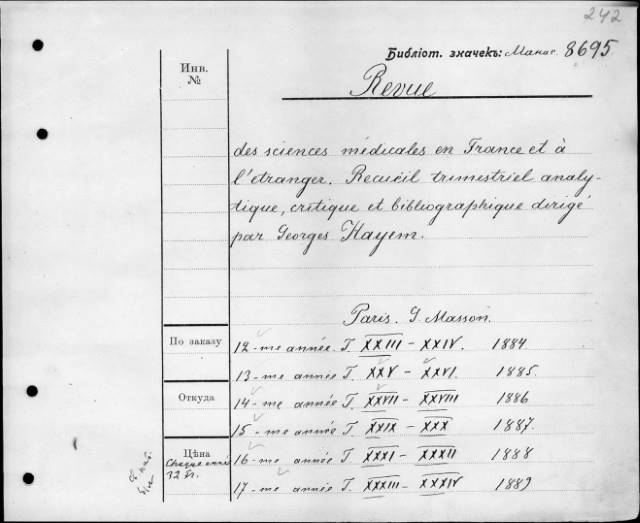 242
Библіот. значекъ: Манос. 8695
Инв.
№
Revue
des sciences médicales en France et à
l'étranger. Recueil trimestriel analy-
tique, critique et bibliographique dirigé
par Georges Hayem.
Paris. G Masson.
По заказу
12-me année. T. XXIII - XXIV. 1884
13-me année T. XXV - XXVI. 1885.
Откуда
14-me année T. XXVII - XXVIII 1886
15-me année T. XXIX - XXX 1887.
Цѣна
Chaque année
32 fr.
16-me année T. XXXI - XXXII 1888
17-me année T. XXXIII - XXXIV 1889